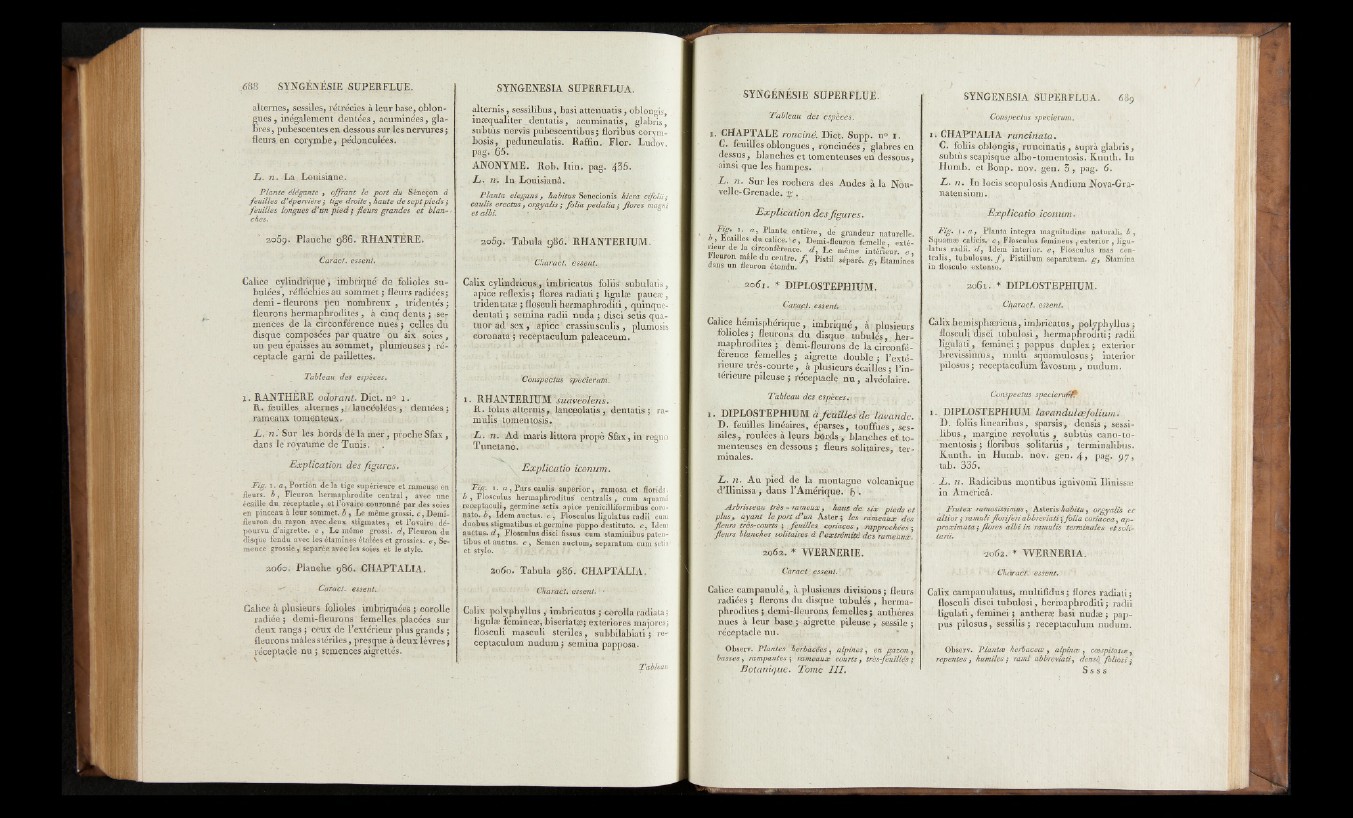 688 SYNGÉNÉSIE SUPERFLUE.
alternes, sessiles, rétrécies à leur base, oblon-
gues, inégalement dentées, acuminées, gla-
bres, pubescentes en dessous sur les nervures ;
fleurs en corymbe, pédonculées.
L. n. La Louisiane.
Plante élégante , offrant le port du Séneçon à
feuilles d'épervière ; tige droite , haute de sept pieds ;
feuilles longues d'un pied ; fleurs grandes et blan-
ches.
2059. Planche 986. RHANTÈRE.
Caract. essent.
Calice cylindrique, imbriqué de folioles su-
bulées, réfléchies au sommet ; fleurs radiées ;
demi-fleurons peu nombreux , tridentés ;
fleurons hermaphrodites, à cinq dents ; se-
mences de la circonférence nues ; celles du
disque composées par quatre ou six soies ,
un peu épaisses au sommet, plumeuses ; ré-
ceptacle garni de paillettes.
Tableau des espèces.
1. RANTHÈRE odorant. Dict. nº 1.
R. feuilles alternes, lancéolées, dentées ;
rameaux tomenteux.
L. n. Sur les bords de la mer, proche Sfax,
dans le royaume de Tunis.
Explication des figures.
Fig. 1. a, Portion de la tige supérieure et rameuse en
fleurs. b, Fleuron hermaphrodite central, avec une
écaille du réceptacle, et l'ovaire couronné par des soies
en pinceau à leur sommet. b, Le même grossi. c, Demi-
fleuron du rayon avec deux stigmates, et l'ovaire dé-
pourvu d'aigrette. c, Le même grossi. d, Fleuron du
disque fendu avec les étamines étalées et grossies. e, Se-
mence grossie, séparée avec les soies et le style.
2060. Planche 986. CHAPTALIA.
Caract. essent.
Calice à plusieurs folioles imbriquées ; corolle
radiée ; demi-fleurons femelles placées sur
deux rangs ; ceux de l'extérieur plus grands ;
fleurons mâles stériles, presque à deux lèvres ;
réceptacle nu ; semences aigrettés.
SYNGENESIA SUPERFLUA.
alternis, sessilibus, basi attenuatis, oblongis,
inæqualiter dentatis, acuminatis, glabris,
subtùs nervis pubescentibus ; floribus corym-
bosis, pedunculatis. Raffin. Flor. Ludov.
pag. 65.
ANONYME. Rob. Itin. pag. 435.
L. n. In Louisianâ.
Planta elegans, habitus Senecionis hieracifolii ;
caulis erectus, orgyalis ; folia pedalia ; flores magni
et albi.
2059. Tabula 986. RHANTERIUM.
Charact. essent.
Calix cylindricus, imbricatus foliis subulatis,
apice reflexis ; flores radiati ; ligulæ paucæ,
tridentatæ ; flosculi hermaphroditi, quinque-
dentati ; semina radii nuda ; disci setis qua-
tuor ad sex, apice crassiusculis, plumosis
coronata ; receptaculum paleaceum.
Conspectus specierum.
1. RHANTERIUM suaveolens.
R. foliis alternis, lanceolatis, dentatis ; ra-
mulis tomentosis.
L. n. Ad maris littora propè Sfax, in regno
Tunetano.
Explicatio iconum.
Fig. 1. a, Pars caulis superior, ramosa et florida.
b, Flosculus hermaphroditus centralis, cum squamâ
receptaculi, germine setis apice penicilliformibus coro-
nato. b, Idem auctus. c, Flosculus ligulatus radii cum
duobus stigmatibus et germine pappo destituto. c, Idem
auctus. d, Flosculus disci fissus cum staminibus paten-
tibus et auctus. e, Semen auctum, separatum cum setis
et stylo.
2060. Tabula 986. CHAPTALIA.
Charact. essent.
Calix polyphyllus, imbricatus ; corolla radiata ;
ligulæ femineæ, biseriatæ ; exteriores majores ;
flosculi masculi steriles, subbilabiati ; re-
ceptaculum nudum ; semina papposa.
Tableau
SYNGÉNÉSIE SUPERFLUE.
Tableau des espèces.
1. CHAPTALE ronciné. Dict. Supp. nº 1.
C. feuilles oblongues, roncinées, glabres en
dessus, blanches et tomenteuses en dessous,
ainsi que les hampes.
L. n. Sur les rochers des Andes à la Nou-
velle-Grenade. ♃.
Explication des figures.
Fig. 1. a, Plante entière, de grandeur naturelle.
b, Ecailles du calice. c, Demi-fleuron femelle, exté-
rieur de la circonférence. d, Le même intérieur. e,
Fleuron mâle du centre. f, Pistil séparé. g, Etamines
dans un fleuron étendu.
2061. * DIPLOSTEPHIUM.
Caract. essent.
Calice hémisphérique, imbriqué, à plusieurs
folioles ; fleurons du disque tubulés, her-
maphrodites ; demi-fleurons de la circonfé-
férence femelles ; aigrette double ; l'exté-
rieure très-courte, à plusieurs écailles ; l'in-
térieure pileuse ; réceptacle nu, alvéolaire.
Tableau des espèces.
1. DIPLOSTEPHIUM à feuilles de lavande.
D. feuilles linéaires, éparses, touffues, ses-
siles, roulées à leurs bords, blanches et to-
menteuses en dessous ; fleurs solitaires, ter-
minales.
L. n. Au pied de la montagne volcanique
d'Ilinissa, dans l'Amérique. ♄.
Arbrisseau très-rameux, haut de six pieds et
plus, ayant le port d'un Aster ; les rameaux des
fleurs très-courts ; feuilles coriaces, rapprochées ;
fleurs blanches solitaires à l'extrémité des rameaux.
2062. * WERNERIE.
Caract. essent.
Calice campanulé, à plusieurs divisions ; fleurs
radiées ; flerons du disque tubulés, herma-
phrodites ; demi-fleurons femelles ; anthères
nues à leur base ; aigrette pileuse, sessile ;
réceptacle nu.
Observ. Plantes herbacées, alpines, en gazon,
basses, rampantes ; rameaux courts, très-feuillés ;
Botanique. Tome III.
SYNGENESIA SUPERFLUA. 689
Conspectus specierum.
1. CHAPTALIA runcinata.
C. foliis oblongis, runcinatis, suprà glabris,
subtùs scapisque albo-tomentosis. Kunth. In
Humb. et Bonp. nov. gen. 5, pag. 6.
L. n. In locis scopulosis Andium Nova-Gra-
natensium.
Explicatio iconum.
Fig. 1. a, Planta integra magnitudine naturali. b,
Squamæ calicis. c, Flosculus femineus, exterior, ligu-
latus radii. d, Idem interior. e, Flosculus mas cen-
tralis, tubulosus. f, Pistillum separatum. g, Stamina
in flosculo extenso.
2061. * DIPLOSTEPHIUM.
Charact. essent.
Calix hemisphæricus, imbricatus, polyphyllus ;
flosculi disci tubulosi, hermaphroditi ; radii
ligulati, feminei ; pappus duplex ; exterior
brevissimus, multi squamulosus ; interior
pilosus ; receptaculum favosum, nudum.
Conspectus specierum.
1. DIPLOSTEPHIUM lavandulæfolium.
D. foliis linearibus, sparsis, densis, sessi-
libus, margine revolutis, subtùs cano-to-
mentosis ; floribus solitariis, terminalibus.
Kunth. in Humb. nov. gen. 4, pag. 97,
tab. 335.
L. n. Radicibus montibus ignivomi Ilinissæ
in Americâ.
Frutex ramosissimus, Asteris habitu, orgyalis et
altior ; ramuli floriferi abbreviati ; folia coriacea, ap-
proximata ; flores albi in ramulis terminales et soli-
tarii.
2062. * WERNERIA.
Charact. essent.
Calix campanulatus, multifidus ; flores radiati ;
flosculi disci tubulosi, hermaphroditi ; radii
ligulati, feminei ; antheræ basi nudæ ; pap-
pus pilosus, sessilis ; receptaculum nudum.
Observ. Plantæ herbaceæ, alpinæ, cæspitosæ,
repentes, humiles ; rami abbreviati, densè foliosi ;
Ssss